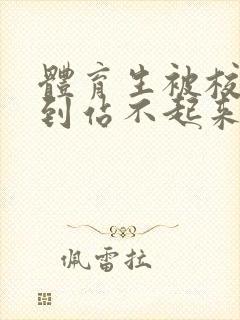 體育生被校
到佔不起來
佩雷拉